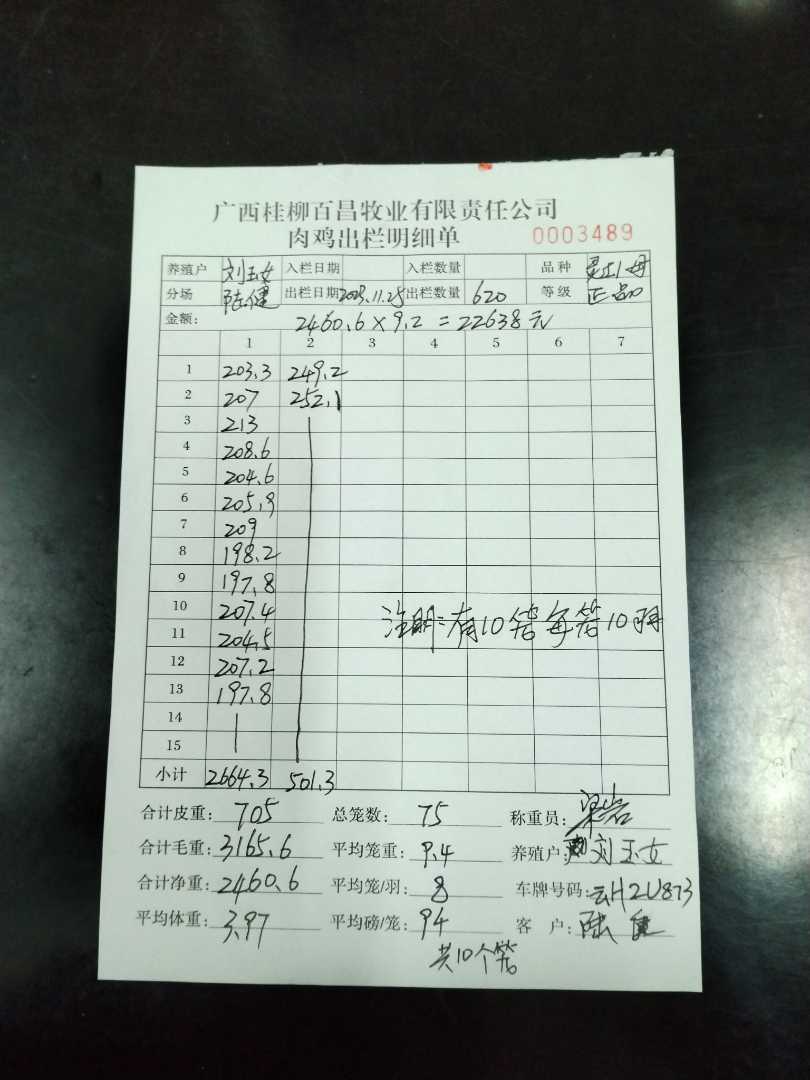 广西桂柳百昌牧业有限责任公司
肉鸡出栏明细单 0003489
养殖户 刘玉女 入栏日期 入栏数量 品种
分场 陆健 出栏日期 2023.11.25 出栏数量 620 等级 正品
金额: 2460.6×9.2=22638元
1 2 3 4 5 6 7
1 203.3 249.2
2 207 252.1
3 213
4 208.6
5 204.6
6 205.9
7 209
8 198.2
9 197.8
10 207.4
11 204.5
12 207.2
13 197.8
14
15
注明:有10笼每笼10羽
小计 2664.3 501.3
合计皮重: 705 总笼数: 75 称重员:
合计毛重: 3165.6 平均笼重: 9.4 养殖户: 刘玉女
合计净重: 2460.6 平均笼/羽: 8 车牌号码: 云H2U873
平均体重: 3.97 平均磅/笼: 94 客户: 陆健
共10个笼